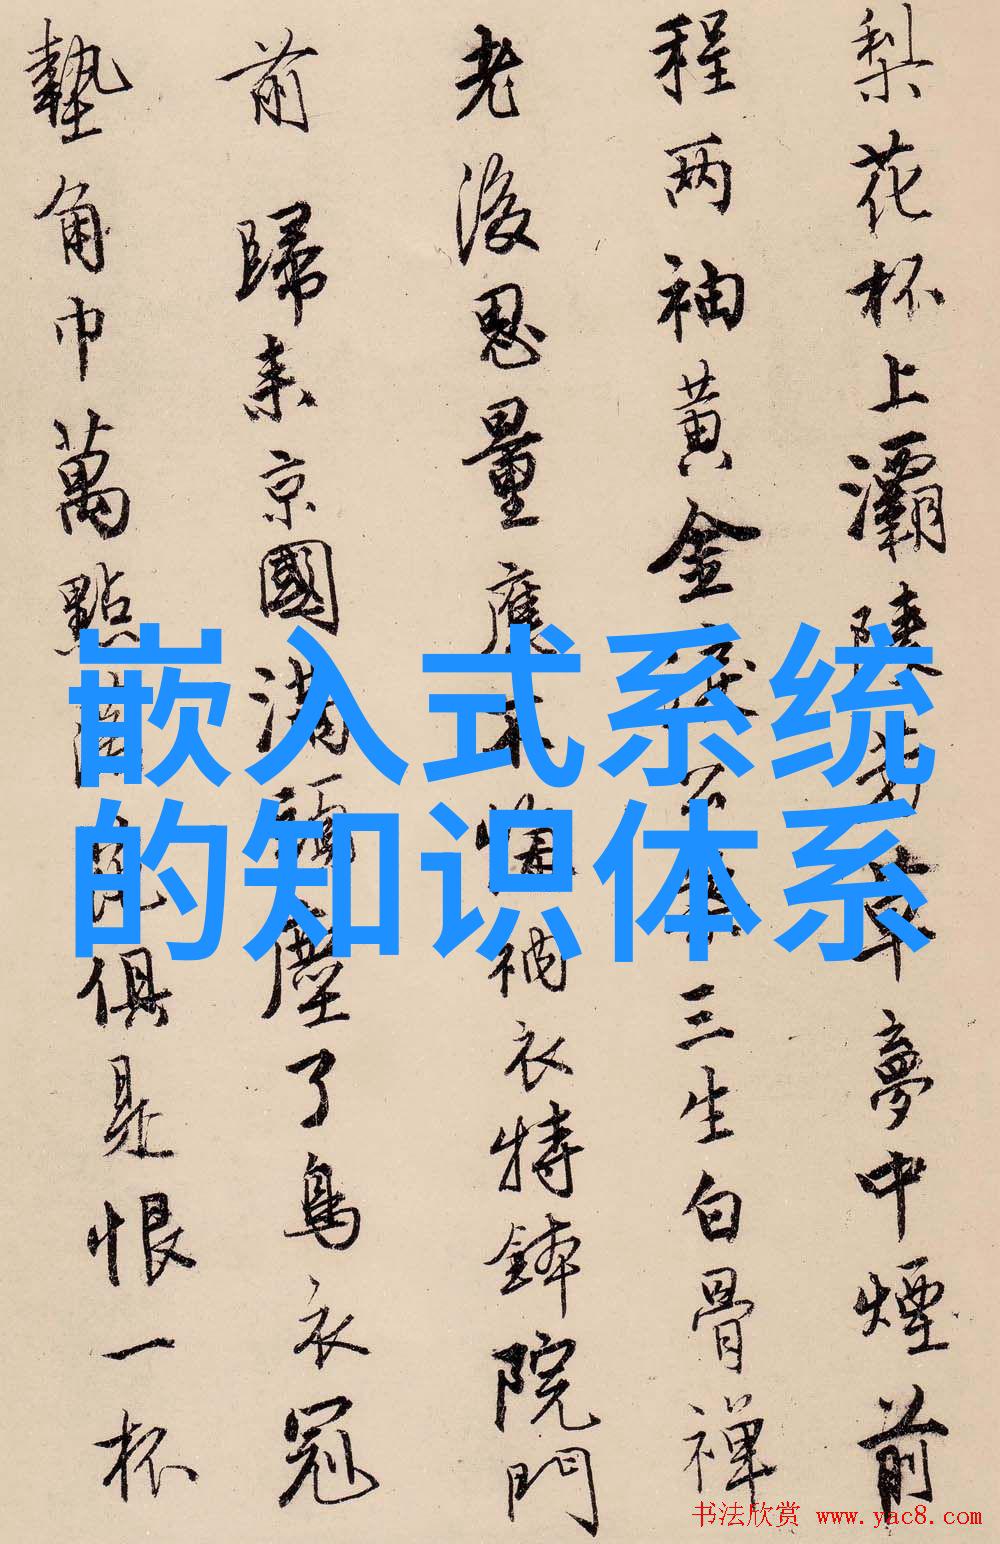 梨花杯上灞陵 草夢中煙前
程两袖黄金淚公案三生白骨禪
老後思量應不悔衲衣持鉢院門
前 歸来京國満頭塵了烏衣冠
墊角巾萬點 俱是恨一杯
嵌入式系统
的知识体系
书法欣赏 www.yac8.com